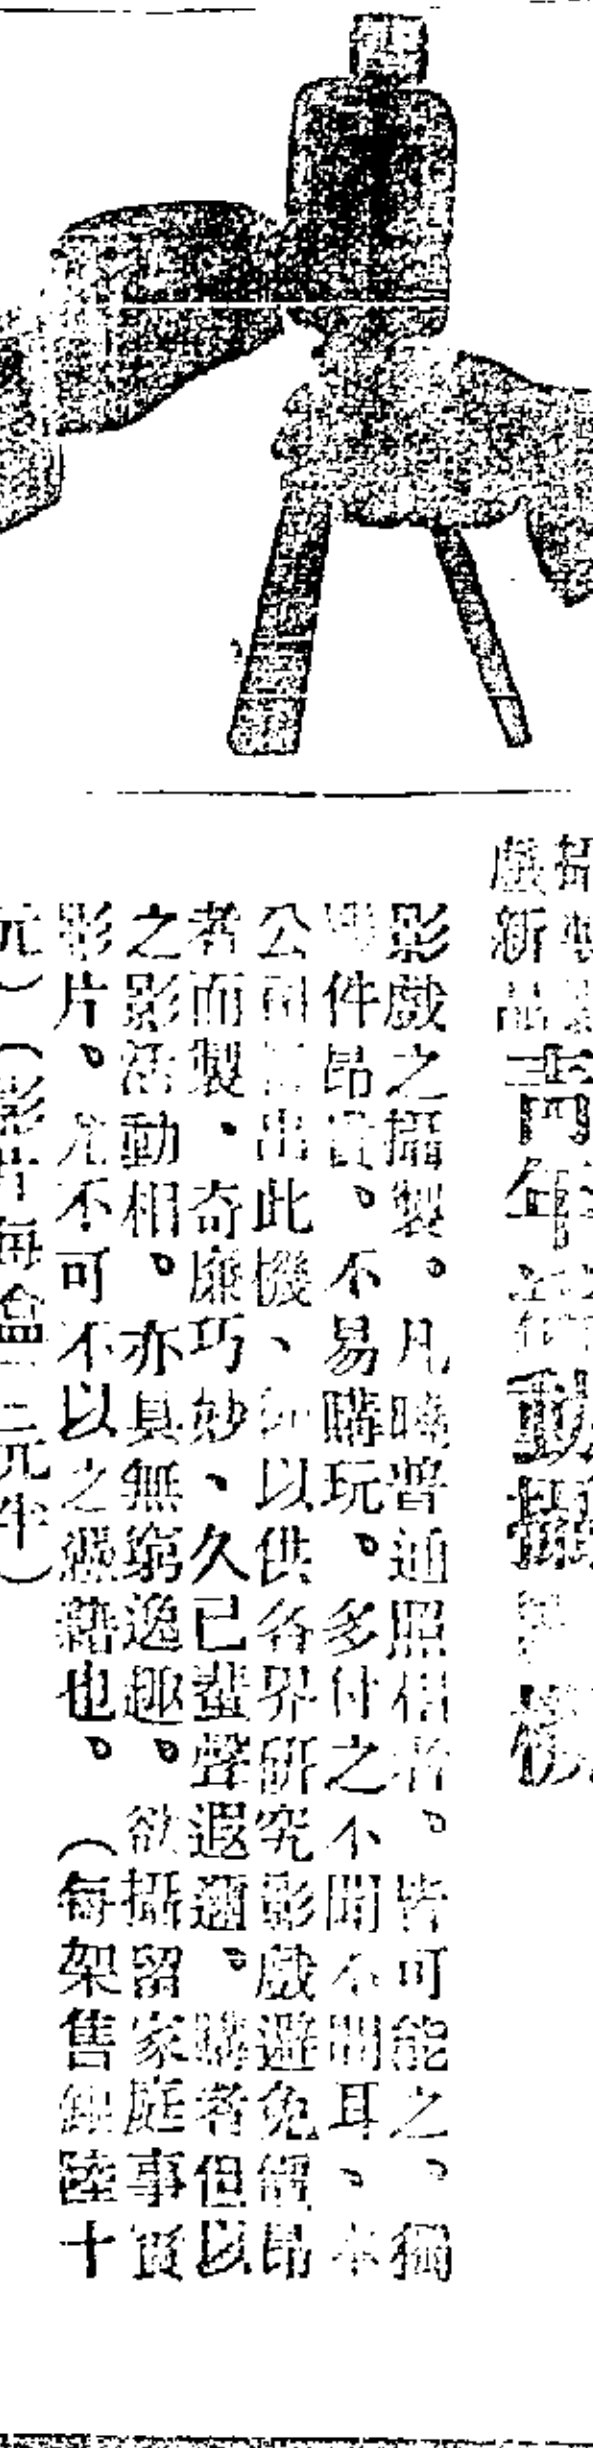 戲新品
青年活動攝機
影戲之攝製。凡曉普通照相者。皆可能之、獨
件昂貴。不易購玩。多付之不聞不問耳、本
公司出此機、以供各界研究影戲避免價昂
者而製、奇廉巧妙、久已蜚聲遐邇。購者但以
之影活動相。亦具無窮逸趣。欲攝留家庭事實
影片。尤不可不以之慰藉也。(每架售銀陸十
元)(影片每盒二元半)